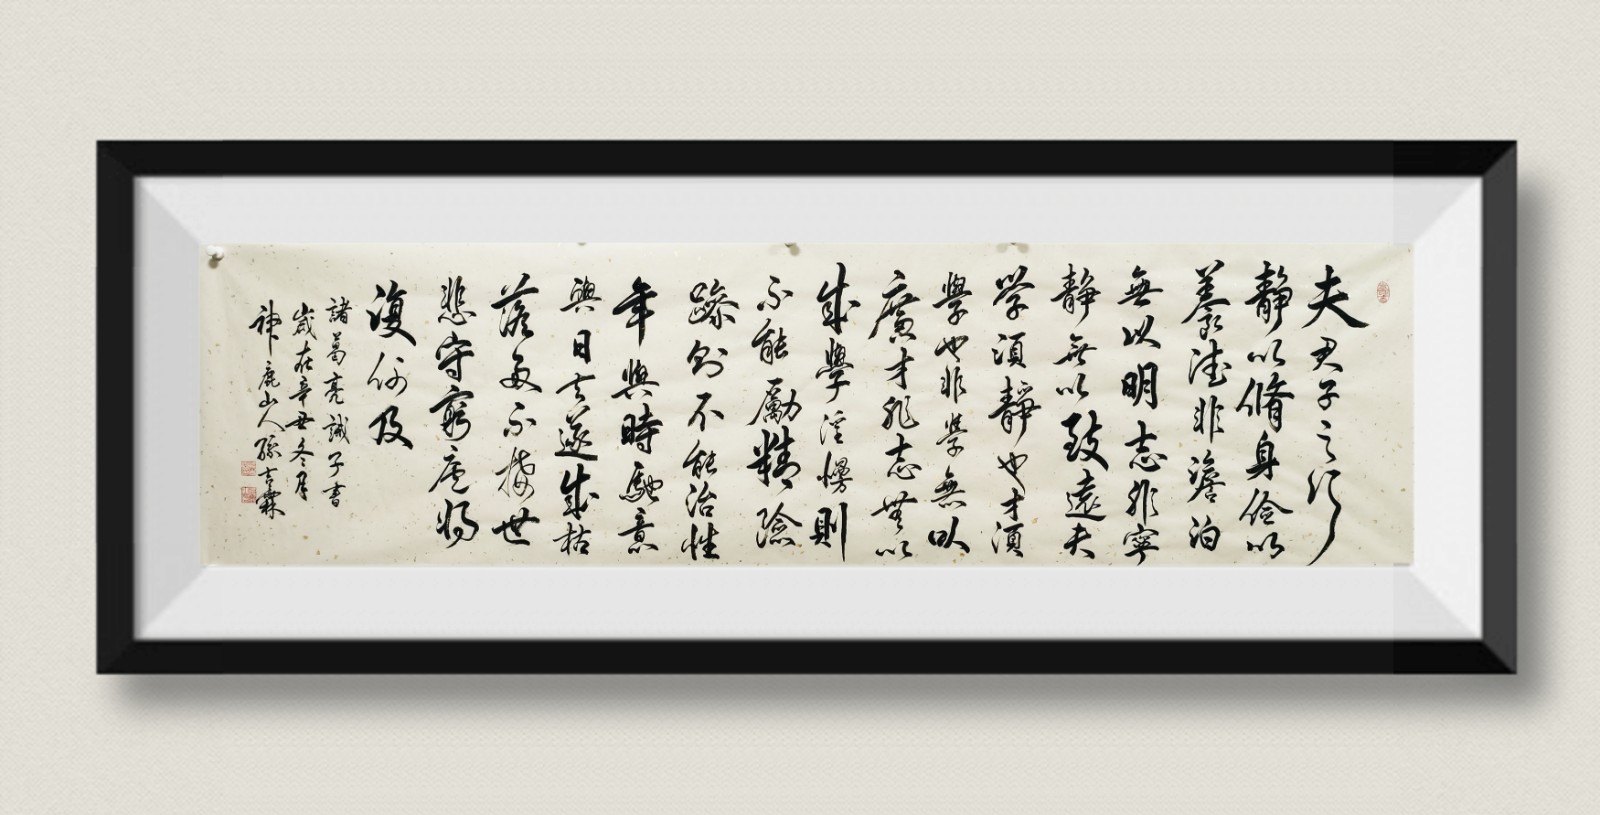 夫君子之行
靜以脩身儉以
養德非澹泊
無以明志非寧
靜無以致遠夫
学須靜也才須
學也非學無以
廣才非志無以
成學淫慢則
不能勵精險
躁則不能治性
年與時馳意
與日去遂成枯
落多不接世
悲守窮廬將
復何及
諸葛亮誡子書
歲在辛丑冬月
神鹿山人孫吉霖